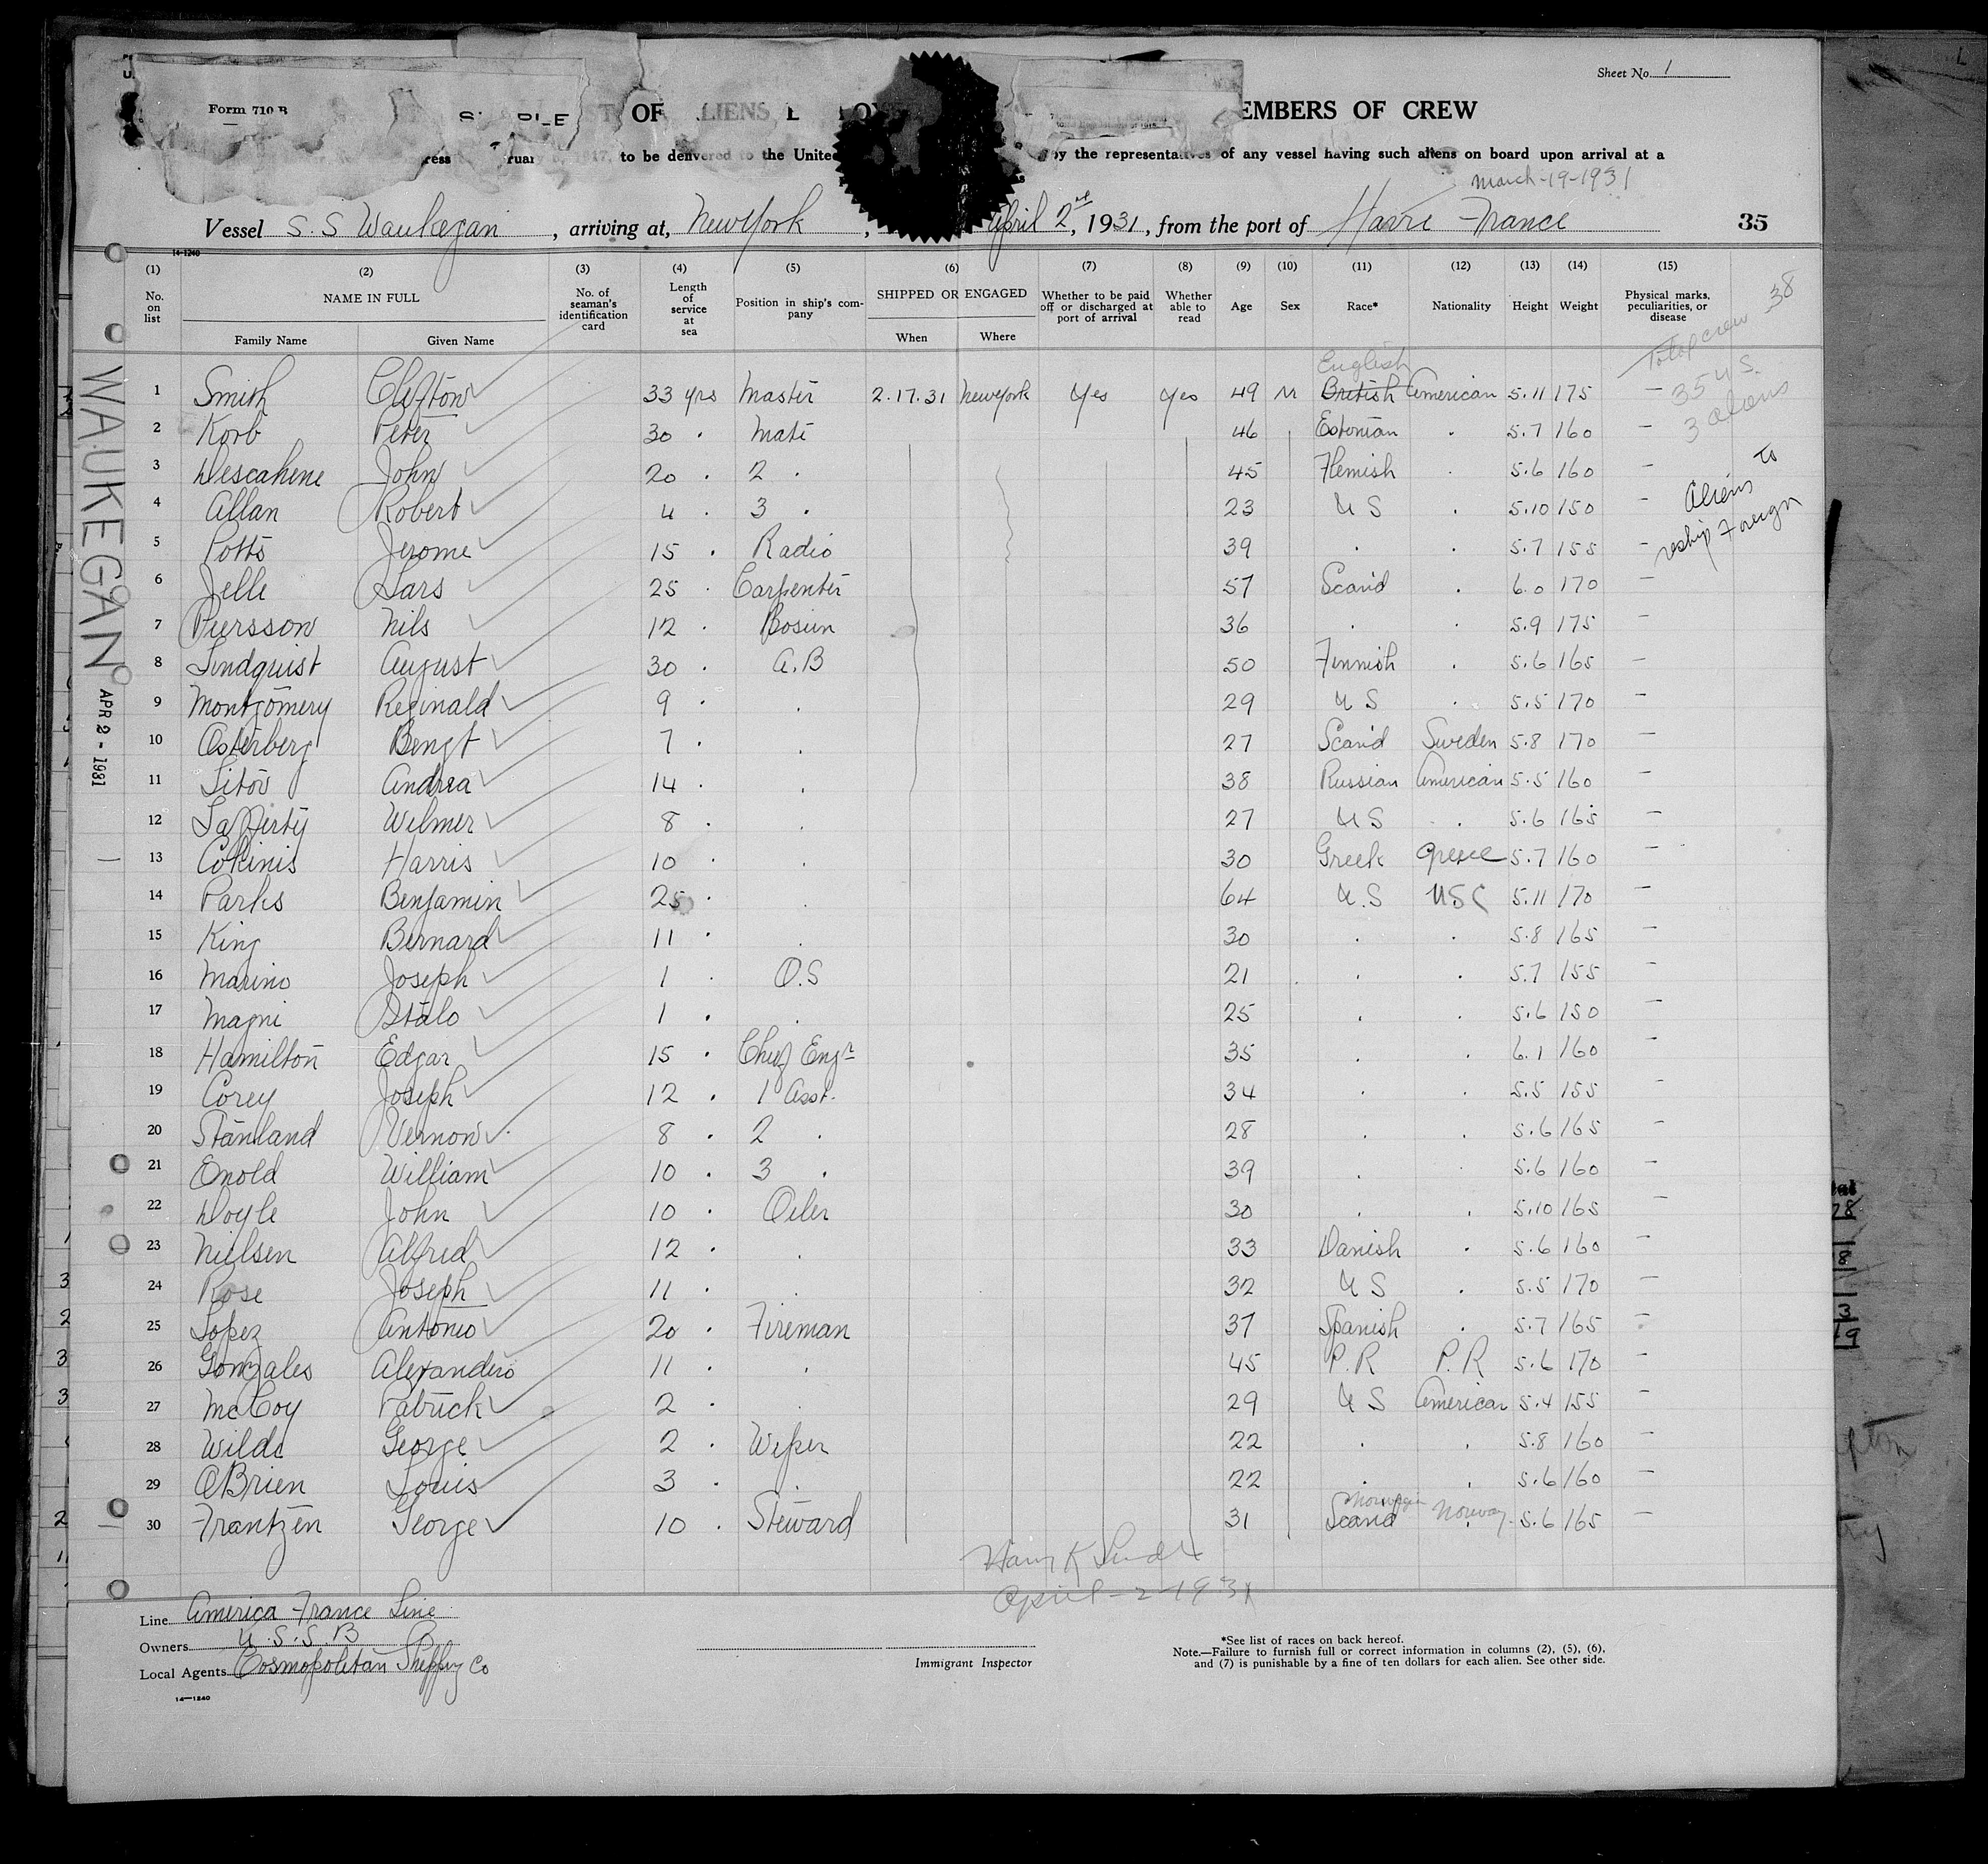 Sheet No. 1
Form 710 B
OF ALIENS EMBERS OF CREW
to be delivered to the United by the representatives of any vessel having such aliens on board upon arrival at a
March-19-1931
Vessel S.S Waukegan, arriving at, New York, April 2nd, 1931, from the port of Havre France 35
14-1240
(1) (2) (3) (4) (5) (6) (7) (8) (9) (10) (11) (12) (13) (14) (15)
No. on list NAME IN FULL Family Name Given Name No. of seaman's identification card Length of service at sea Position in ship's company SHIPPED OR ENGAGED When Where Whether to be paid off or discharged at port of arrival Whether able to read Age Sex Race* Nationality Height Weight Physical marks, peculiarities, or disease
Total crew 38
35 U.S.
3 aliens
Aliens to
reship Foreign
WAUKEGAN
APR 2 - 1931
English
1 Smith Clifton 33 yrs Master 2.17.31 New York Yes Yes 49 M British American 5.11 175 –
2 Korb Peter 30 . Mate 46 Estonian . 5.7 160 –
3 Descahene John 20 . 2 . 45 Flemish . 5.6 160 –
4 Allan Robert 4 . 3 . 23 U S 5.10 150 –
5 Potts Jerome 15 . Radio 39 . . 5.7 155 –
6 Jelle Lars 25 . Carpenter 57 Scand . 6.0 170 –
7 Persson Nils 12 . Bosun 36 . . 5.9 175 –
8 Lindquist August 30 . A.B 50 Finnish . 5.6 165 –
9 Montgomery Reginald 9 . . 29 U S . 5.5 170 –
10 Osterberg Bengt 7 . . 27 Scand Sweden 5.8 170 –
11 Sitov Andrea 14 . . 38 Russian American 5.5 160 –
12 Lafferty Wilmer 8 . . 27 U S . 5.6 165 –
13 Cokinis Harris 10 . . 30 Greek Greece 5.7 160 –
14 Parks Benjamin 25 . . 64 U.S USC 5.11 170 –
15 King Bernard 11 . . 30 . . 5.8 165 –
16 Marino Joseph 1 . O.S 21 . . 5.7 155 –
17 Magni Italo 1 . . 25 . . 5.6 150 –
18 Hamilton Edgar 15 . Chief Engr 35 . . 6.1 160 –
19 Corey Joseph 12 . 1 Asst. 34 . . 5.5 155 –
20 Stanland Vernon 8 . 2 . 28 . . 5.6 165 –
21 Enold William 10 . 3 . 39 . . 5.6 160 –
22 Doyle John 10 . Oiler 30 . . 5.10 165 –
23 Nielsen Alfred 12 . . 33 Danish . 5.6 160 –
24 Rose Joseph 11 . . 32 U S . 5.5 170 –
25 Lopez Antonio 20 . Fireman 37 Spanish . 5.7 165 –
26 Gonzales Alexandero 11 . . 45 P.R P.R 5.6 170 –
27 McCoy Patrick 2 . . 29 U S American 5.4 155 –
28 Wilde George 2 . Wiper 22 . . 5.8 160 –
29 OBrien Louis 3 . . 22 . . 5.6 160 –
Norwegian
30 Frantzen George 10 . Steward 31 Scand Norway 5.6 165 –
April-2-1931
Line America France Line
Owners U.S.S.B
Local Agents Cosmopolitan Shipping Co
14-1240
Immigrant Inspector
*See list of races on back hereof.
Note.—Failure to furnish full or correct information in columns (2), (5), (6),
and (7) is punishable by a fine of ten dollars for each alien. See other side.